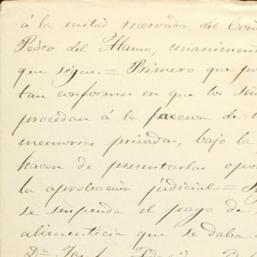 á la mitad reservada del Con
Pedro del Alamo, unanimemen
que sigue = Primero que por
tan conformes en que los Señ
procedan á la faccion de
memorias privadas, bajo la
hacen de presentarlas opo
la aprobacion judicial =
se suspenda el pago de
alimenticia que se daba